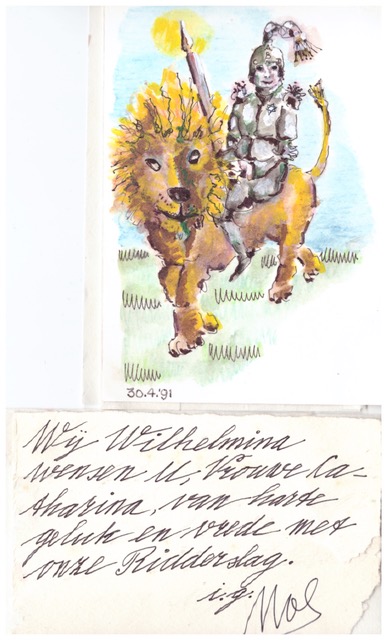 30.4.'91
Wij Wilhelmina
wensen U, Vrouwe Ca-
tharina, van harte
geluk en vrede met
onze Ridderslag.
i.g.